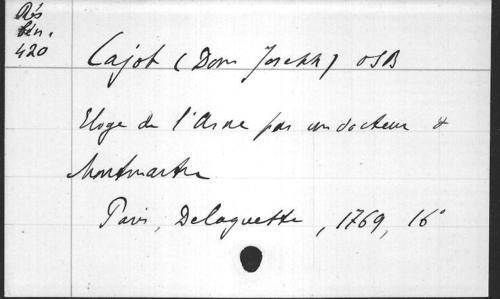 Rés
bén.
420
Cajot (Dom Joseph) OSB
Eloge de l'Asne par un docteur de
Montmartre
Paris, Delaguette, 1769, 16°